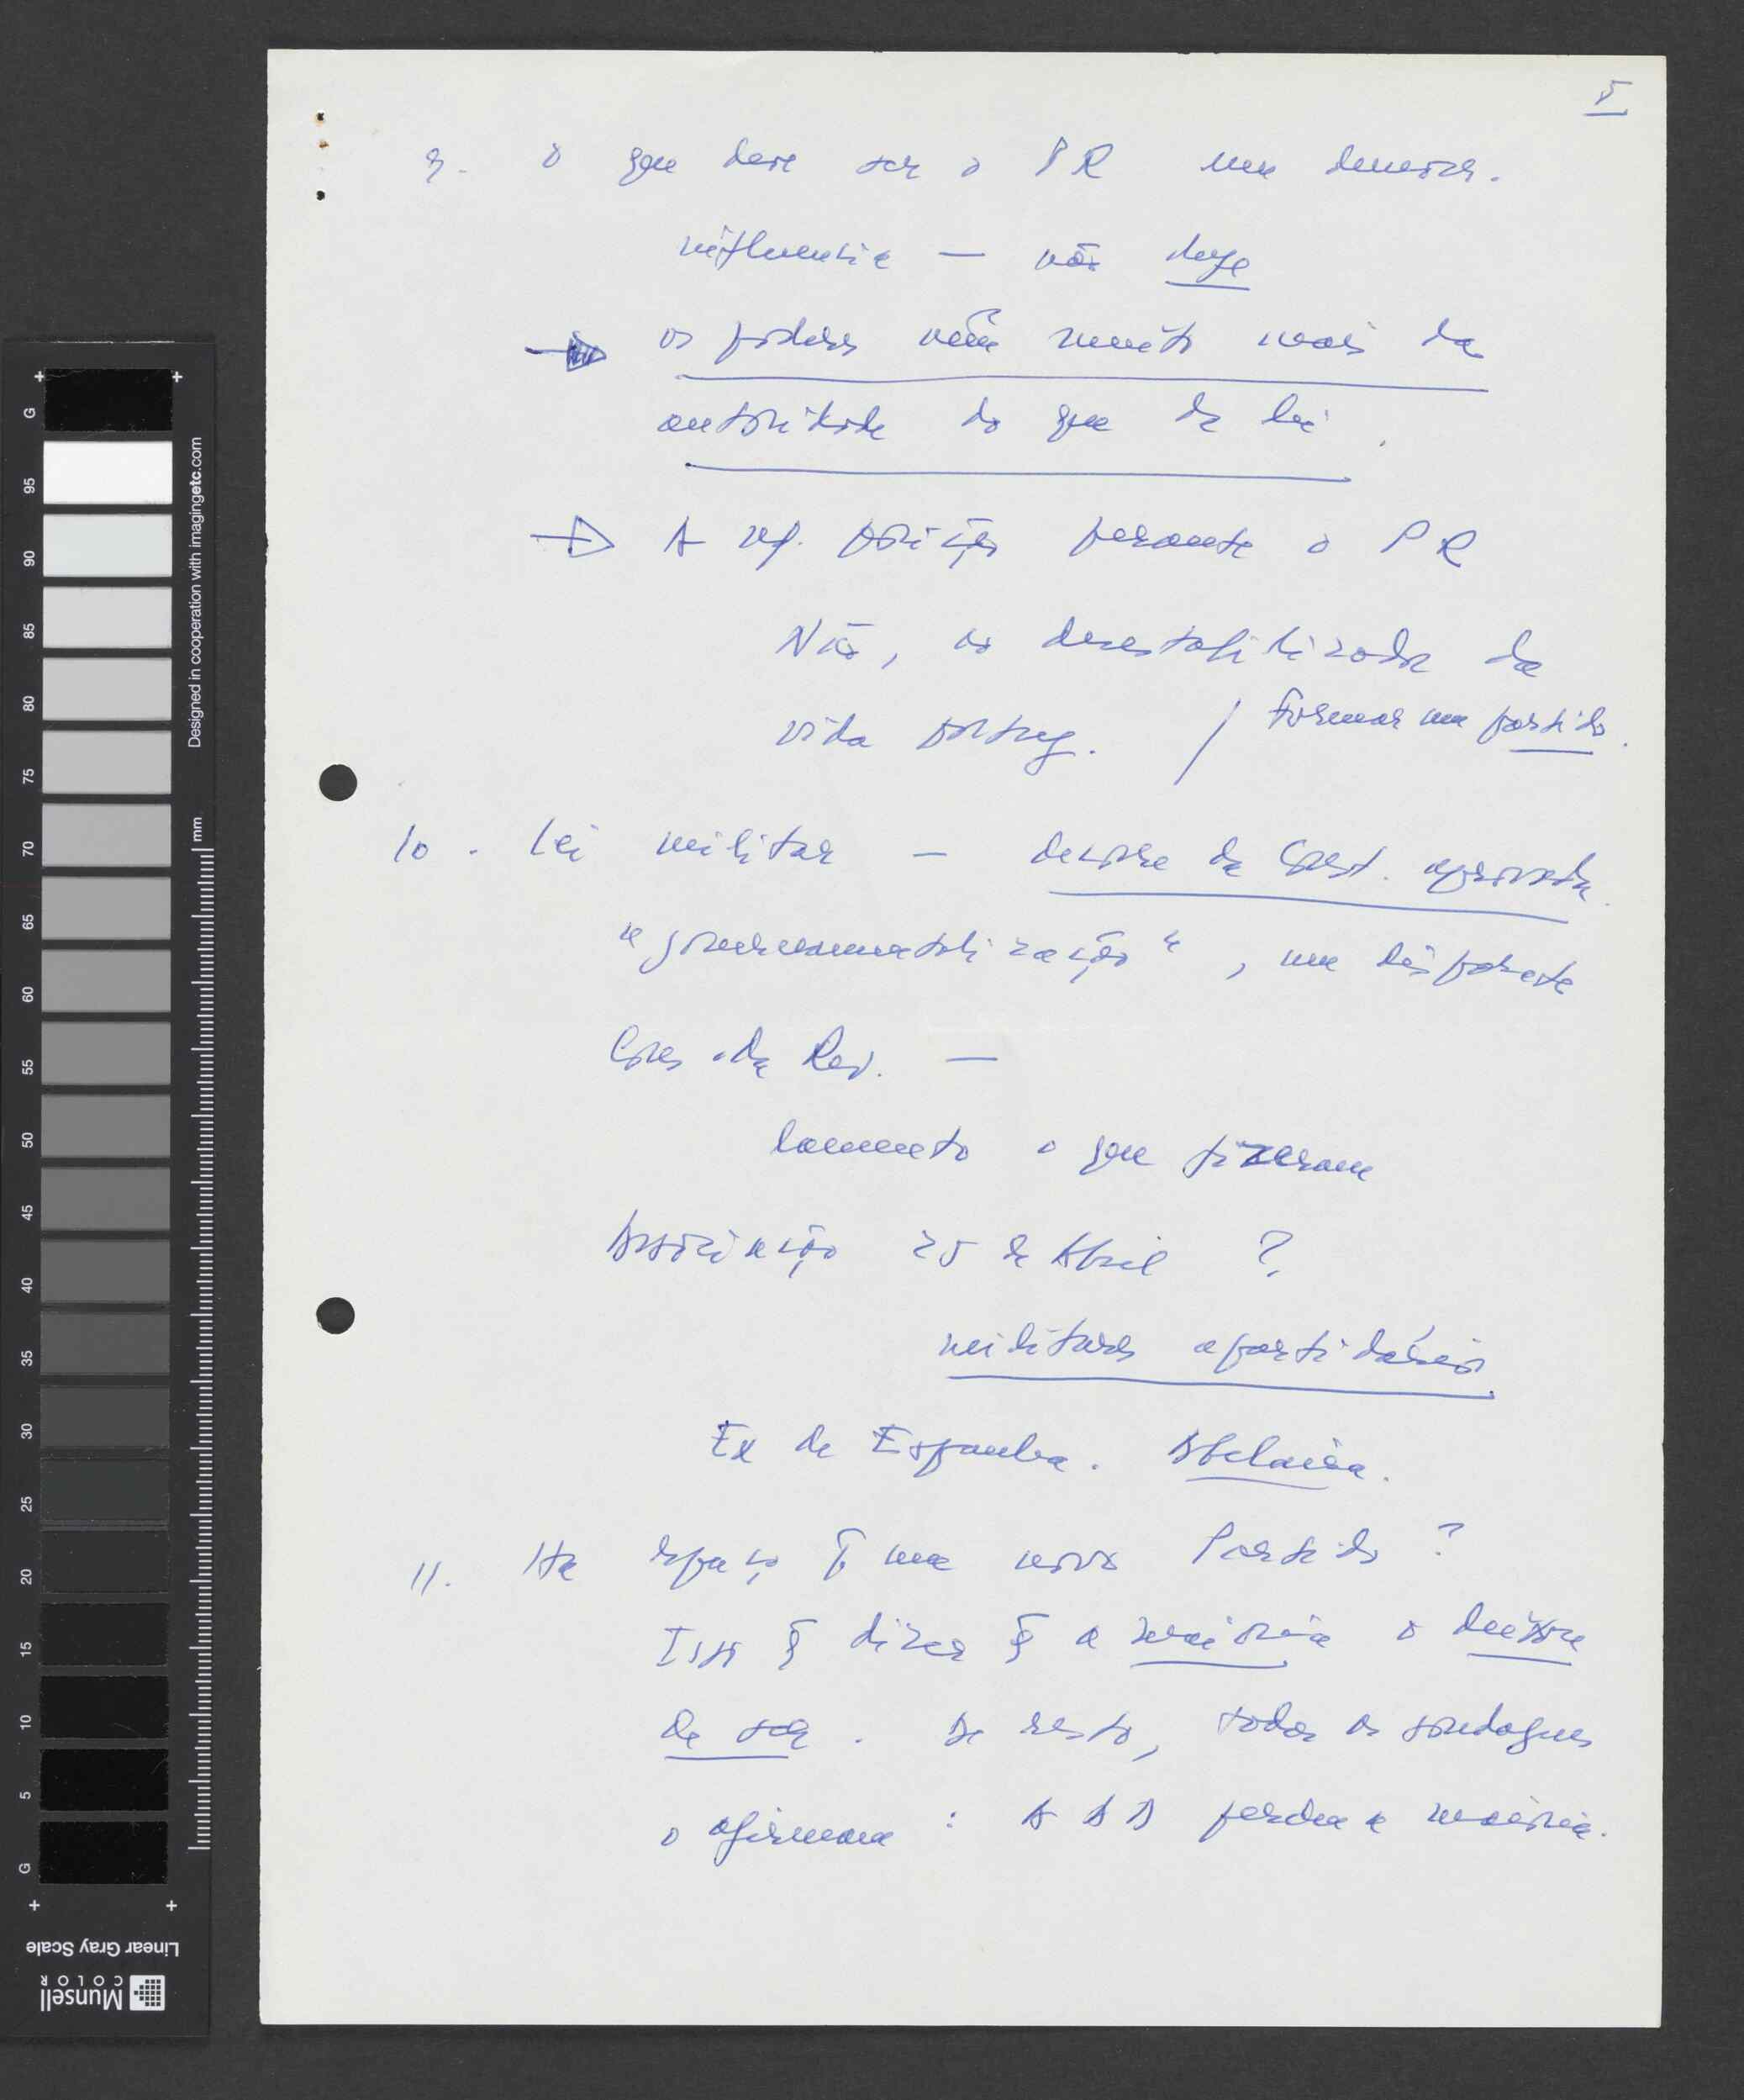 5
9. o que deve ser o PR num democr.
influencia — não
os poderes vêm muito mais da
autoridade do que da lei.
A posição perante o PR
Não, à desestabilizada da
vida portug. / formar um partido.
10. Lei militar — decorre da Const. aprovada.
"governamentalização", um disparate
Cons. da Rev. —
lamento o que fizeram
Associação 25 de Abril ?
militares apartidários
Ex de Espanha. Abelaira.
11. Há espaço p. um novo Partido ?
Isso q dizer q a maioria o deixou
de ser. De resto, todas as sondagens
o afirmam : A AD perdeu a maioria.
Designed in cooperation with imagingetc.com
mm
G 95 90 85 80 75 70 65 60 55 50 45 40 35 30 25 20 15 10 5 G
Linear Gray Scale
Munsell
COLOR